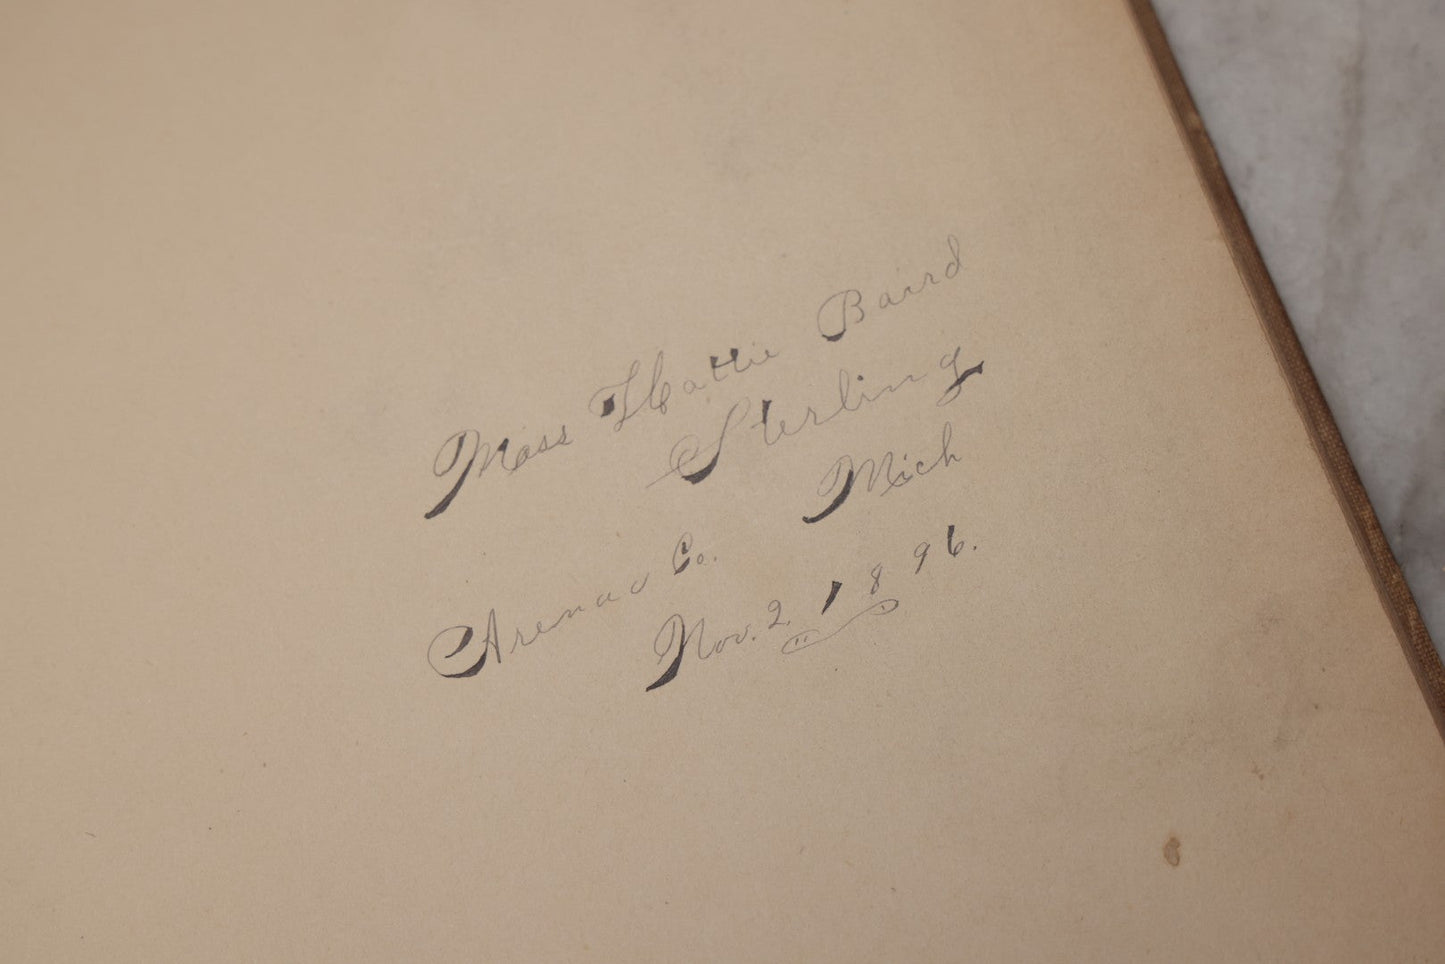 Miss Hattie Baird
Sterling
Arenac Co. Mich
Nov. 2, 1896.